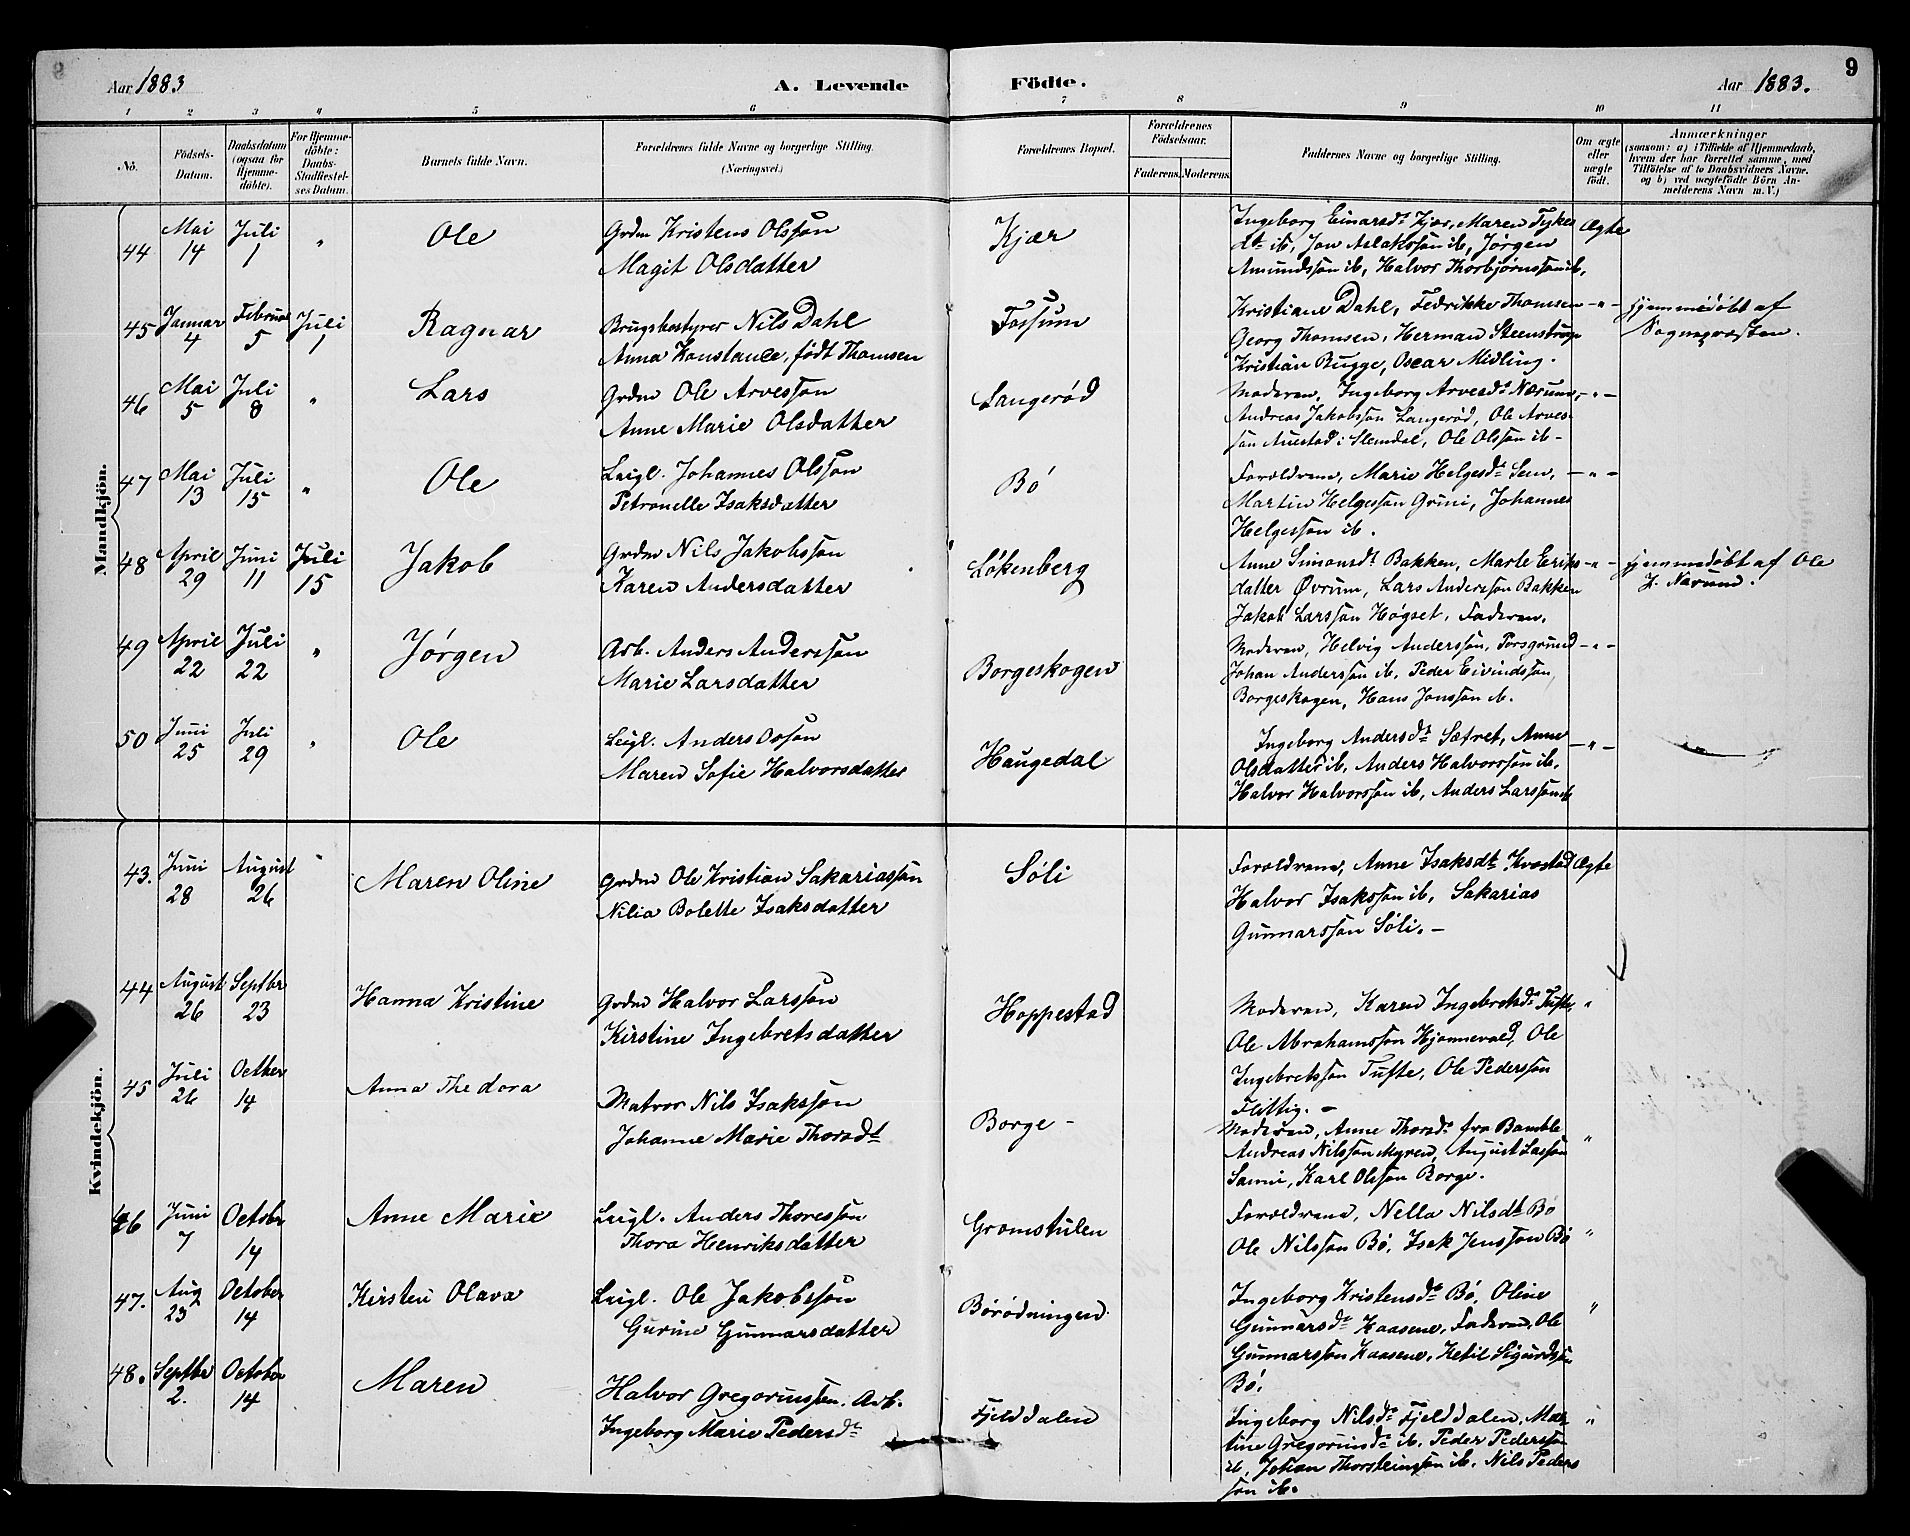 9
Aar 1883
A. Levende
Födte.
Aar 1883.
1 2 3 4 5 6 7 8 9 10 11
No.
Födsels-
Datum.
Daabsdatum
(ogsaa for
Hjemme-
döbte).
For Hjemme-
döbte:
Daabs-
Stadfæstel-
ses Datum.
Barnets fulde Navn.
Forældrenes fulde Navne og borgerlige Stilling.
(Næringsvei.)
Forældrenes Bopæl.
Forældrenes
Födselsaar.
Faderens. Moderens.
Faddernes Navne og borgerlige Stilling.
Om ægte
eller
uægte
født.
Anmærkninger
(saasom: a) i Tilfælde af Hjemmedaab,
hvem der har forrettet samme, med
Tilföielse af to Daabsvidners Navne,
og b) ved uægtefödte Börn An-
melderens Navn m. V.)
Mandkjön.
44
Mai
14
Juli
1
"
Ole
Grdm Kristens Olsson
Magit Olsdatter
Kjær
Ingeborg Einarsdt Kjær, Maren Tykes
dtr ib, Jon Aslakssøn ib, Jørgen
Amundssøn ib, Halvor Thorbjørnssøn ib,
Ægte
45
Januar
4
Februar
5
Juli
1
Ragnar
Brugsbestyrer Nils Dahl
Anna Konstance, født Thomsen
Fossum
Kristiane Dahl, Fedrikke Thomsen
Georg Thomsen, Herman Steenstrup
Kristian Bugge, Oscar Midling.
-"-
Hjemmedøbt af
Sognepræsten.
46
Mai
5
Juli
8
"
Lars
Grdm Ole Arvessøn
Anne Marie Olsdatter
Langerød
Moderen, Ingeborg Arvesdt Nærum,
Andreas Jakobssøn Langerød, Ole Arves-
søn Auestad i Slemdal, Ole Olssøn ib -
-"-
47
Mai
13
Juli
15
"
Ole
Leigl. Johannes Olssøn
Petronelle Isaksdatter
Bø
Forældrene, Marie Helgesdt Sem,
Martin Helgessøn Grini, Johannes
Helgessøn ib.
-"-
48
April
29
Juni
11
Juli
15
Jakob
Grdm Nils Jakobssøn
Karen Andersdatter
Løkenberg
Anne Simonsdt Bakken, Marte Eriks
datter Øvrum, Lars Anderssøn Bakken
Jakob Larssøn Høgset, Faderen.
-"-
Hjemmedøbt af Ole
49
April
22
Juli
22
"
Jørgen
Arb. Anders Anderssøn
Marie Larsdatter
Borgeskogen
Moderen, Helvig Anderssøn, Porsgrund
Johan Anderssøn ib, Peder Eivindssøn,
Borgeskogen, Hans Jonssøn ib.
-"-
50
Juni
25
Juli
29
"
Ole
Leigl. Anders Ossøn
Maren Sofie Halvorsdatter
Haugedal
Ingeborg Andersdt Sætret, Anne
Olsdatter ib, Anders Halvorssøn ib,
Halvor Halvorssøn ib, Anders Larssøn ib
-"-
Kvindekjön.
43.
Juni
28
August
26
"
Maren Oline
Grdm Ole Kristian Sakariassøn
Nilia Bolette Isaksdatter
Søli
Forældrene, Anne Isaksdt Kvestad
Halvor Isakssøn ib, Sakarias
Gunnarssøn Søli. -
Ægte
44
August
26
Septbr
23
Hanna Kristine
Grdm Halvor Larssøn
Kirstine Ingebretsdatter
Hoppestad
Moderen, Karen Ingebretsdt Tufte,
Ole Abrahamssøn Hjønnevald, Ole
Ingebretssøn Tufte, Ole Pederssøn
Flittig. -
"
45
Juli
26
Octber
14
Anna Thedora
Matros Nils Isakssøn
Johanne Marie Thorsdt
Borge -
Moderen, Anne Thorsdt fra Bamble
Andreas Nilssøn Myren, August Lassøn
Sanni, Karl Olssøn Borge.
"
46
Juni
7
October
14
Anne Marie
Leigl. Anders Thoressøn
Thora Henriksdatter
Gromstulen
Forældrene, Nella Nilsdt Bø
Ole Nilssøn Bø, Isak Jenssøn Bø
"
47.
Aug
23
October
14
Kirsten Olava
Leigl. Ole Jakobssøn
Gurine Gunnarsdatter
Børødningen
Ingeborg Kristensdt Bø, Oline
Gunnarsdt Kaasene, Faderen, Ole
Gunnarssøn Kaasene, Ketil Sigurdssøn
Bø.
"
48.
Septbr
2.
October
14
Maren
Halvor Gregoriussøn. Arb.
Ingeborg Marie Pedersdt
Fjelddalen
Ingeborg Nilsdt Fjelddalen, Mar-
tine Gregoriusdt ib, Peder Pederssøn
ib, Johan Thorsteinssøn ib, Nils Peders
søn ib.
"